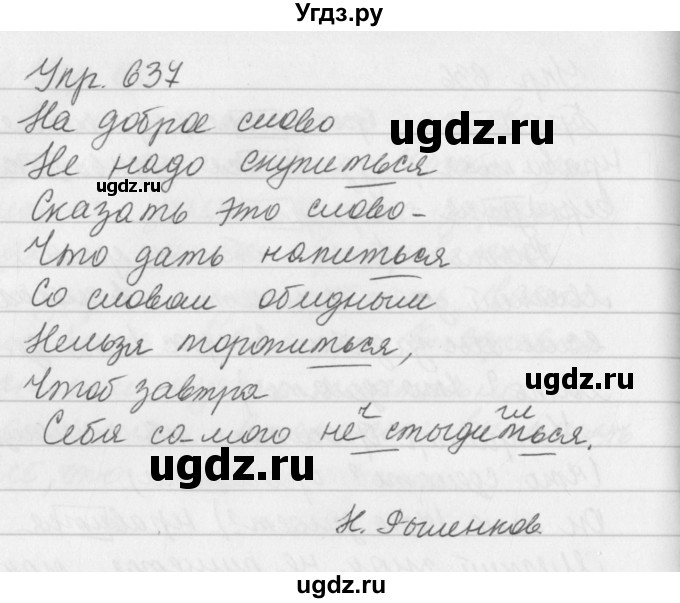 Угдз.ру
Упр. 637
На доброе слово
ugdz.ru
Не надо скупиться
ugdz.ru
Сказать это слово-
Что дать напиться
Со словом обидным
Нельзя торопиться,
ugdz.ru
Чтоб завтра
ч гл
Себя самого не стыдиться.
ugdz.ru
Н. Рыленков.
ugdz.ru